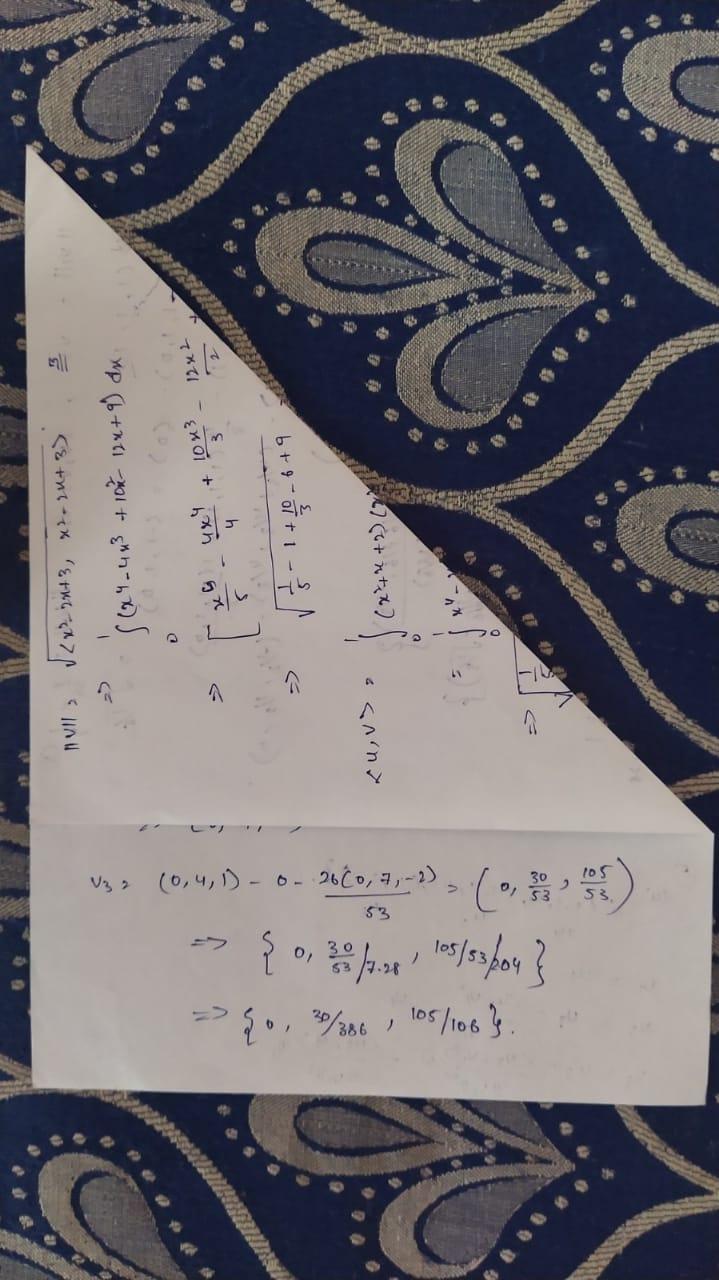 ||V|| = √<x²-2x+3, x²-2x+3>
=> ∫₀¹ (x⁴-4x³+10x²-12x+9) dx
=> [x⁵/5 - 4x⁴/4 + 10x³/3 - 12x²/2 +
=> √1/5 - 1 + 10/3 - 6 + 9
<u,v> = ∫₀¹ (x²+x+2)(x²
= ∫₀¹ x⁴ -
=> √1/5
V₃ = (0,4,1) - 0 - 26(0,7,-2)/53 = (0, 30/53, 105/53)
=> {0, 30/53/7.28, 105/53/2.04}
=> {0, 30/386, 105/106}.